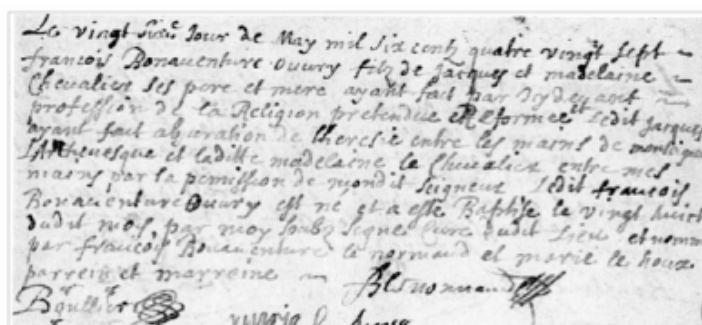 Le vingt six.e Jour de May mil six centz quatre vingt sept
francois Bonaventure ouvry filz de Jacques et madelaine
Chevalier ses pere et mere ayant fait par cydevant
profession de la Religion pretendue Reformee et ledit Jacques
ayant fait abjuration de lheresie entre les mains de
LArchevesque et laditte madelaine le Chevalier entre mes
mains par la permission de mondit seigneur ledit francois
Bonaventure Ouvry est ne et a este Baptise le vingt huict
dudit mois par moy soubz signe Cure dudit lieu et nomme
par francois Bonaventure le normand et marie le houx
parrein et marreine